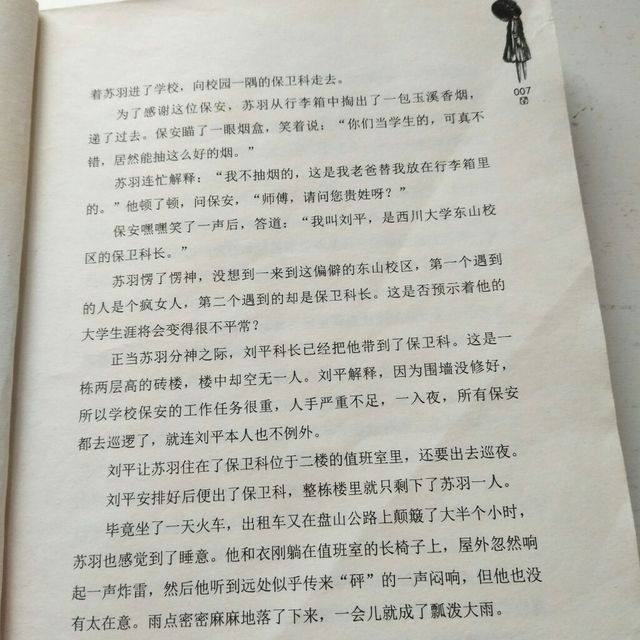 007
着苏羽进了学校，向校园一隅的保卫科走去。
为了感谢这位保安，苏羽从行李箱中掏出了一包玉溪香烟，
递了过去。保安瞄了一眼烟盒，笑着说：“你们当学生的，可真不
错，居然能抽这么好的烟。”
苏羽连忙解释：“我不抽烟的，这是我老爸替我放在行李箱里
的。”他顿了顿，问保安，“师傅，请问您贵姓呀？”
保安嘿嘿笑了一声后，答道：“我叫刘平，是西川大学东山校
区的保卫科长。”
苏羽愣了愣神，没想到一来到这偏僻的东山校区，第一个遇到
的人是个疯女人，第二个遇到的却是保卫科长。这是否预示着他的
大学生涯将会变得很不平常？
正当苏羽分神之际，刘平科长已经把他带到了保卫科。这是一
栋两层高的砖楼，楼中却空无一人。刘平解释，因为围墙没修好，
所以学校保安的工作任务很重，人手严重不足，一入夜，所有保安
都去巡逻了，就连刘平本人也不例外。
刘平让苏羽住在了保卫科位于二楼的值班室里，还要出去巡夜。
刘平安排好后便出了保卫科，整栋楼里就只剩下了苏羽一人。
毕竟坐了一天火车，出租车又在盘山公路上颠簸了大半个小时，
苏羽也感觉到了睡意。他和衣刚躺在值班室的长椅子上，屋外忽然响
起一声炸雷，然后他听到远处似乎传来“砰”的一声闷响，但他也没
有太在意。雨点密密麻麻地落了下来，一会儿就成了瓢泼大雨。